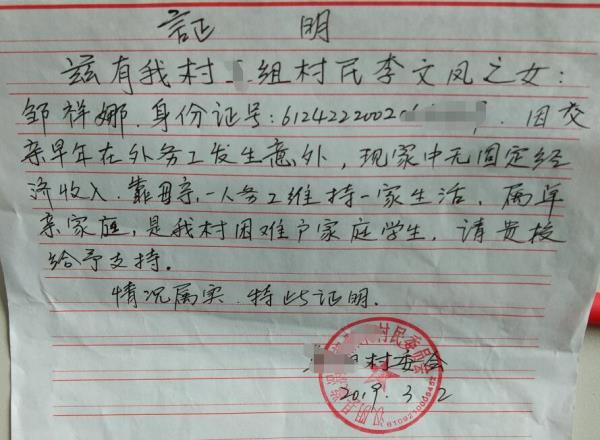 証 明
兹有我村组村民李文凤之女：
邹祥娜.身份证号：6124222002 . 因交
亲早年在外务工发生意外，现家中无固定经
济收入.靠母亲.一人务工维持一家生活，属单
亲家庭，是我村困难户家庭学生，请贵校
给予支持。
情况属实.特此证明.
村委会
2019.3.2
村民委员会